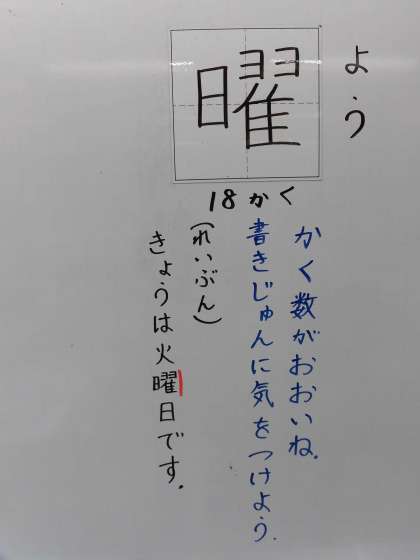 よう
曜
18かく
かく数がおおいね.
書きじゅんに気をつけよう.
(れいぶん)
きょうは火曜日です.